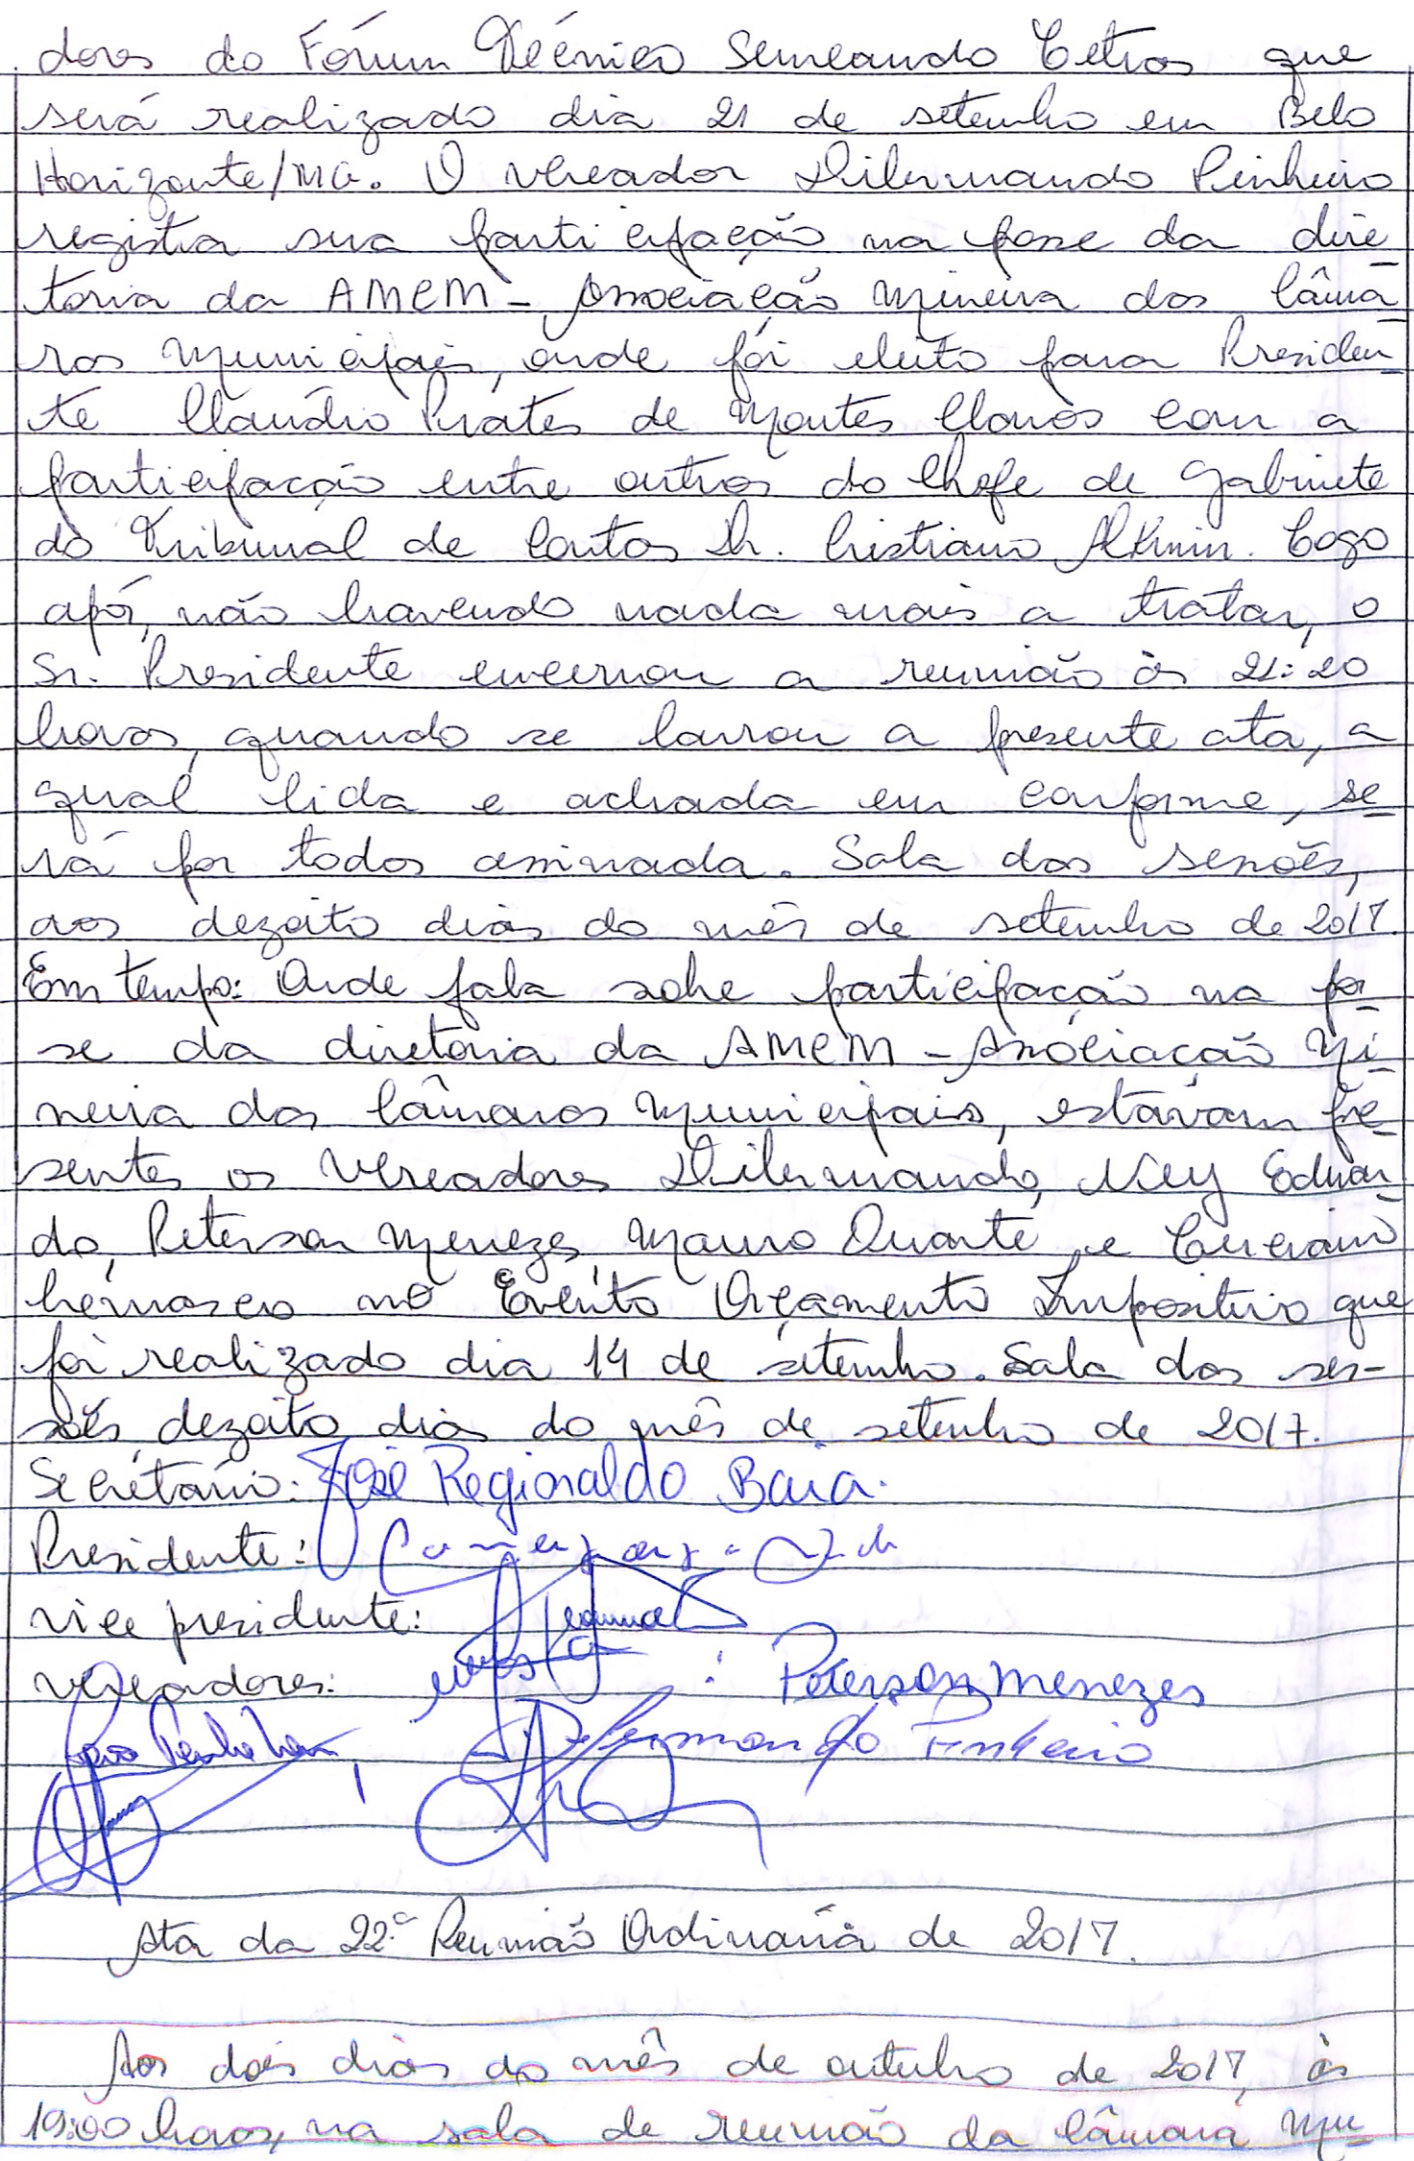 dores do Fórum Técnico Semeando Letras que
será realizado dia 21 de setembro em Belo
Horizonte/MG. O vereador Dilermando Pinheiro
registra sua participação na posse da dire
toria da AMCM - Associação Mineira das Câma
ras Municipais, onde foi eleito para Presiden
te Claúdio Prates de Montes Claros com a
participação entre outros do Chefe de Gabinete
do Tribunal de Contas Dr. Cristiano Alkmin. Logo
após, não havendo nada mais a tratar, o
Sr. Presidente encerrou a reunião às 21:20
horas, quando se lavrou a presente ata, a
qual lida e achada em conforme, se
rá por todos assinada. Sala das sessões,
aos dezoito dias do mês de setembro de 2017.
Em tempo: Onde fala sobre participação na po
se da diretoria da AMCM - Associação Mi
neira das Câmaras Municipais, estavam pre
sentes os Vereadores Dilermando, Ney Eduar
do, Peterson Menezes, Mauro Duarte e
no Evento Orçamento Impositivo que
foi realizado dia 14 de setembro. Sala das ses-
sões, dezoito dias do mês de setembro de 2017.
Secretário: José Reginaldo Baia.
Presidente:
vice presidente:
vereadores: Peterson Menezes
Dilermando Pinheiro
Ata da 22ª Reunião Ordinária de 2017.
Aos dois dias do mês de outubro de 2017, às
19:00 horas, na sala de reunião da Câmara Mu